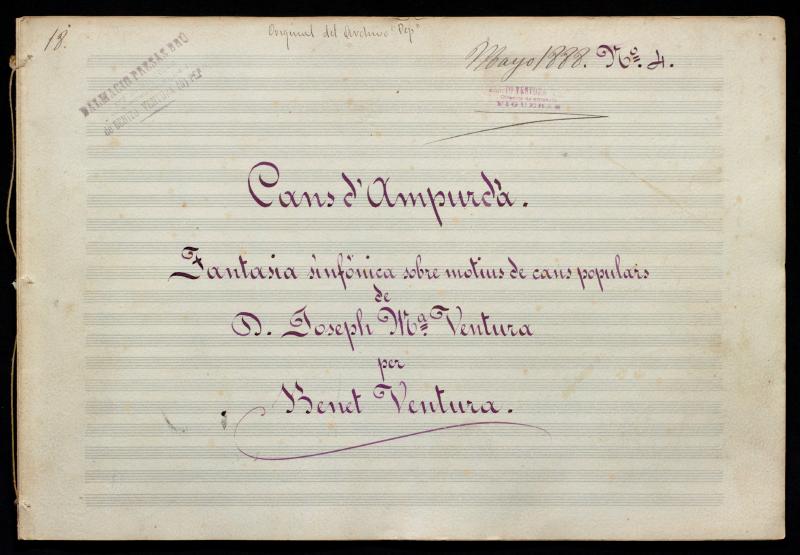 18.
Original del Archivo "Pep"
Mayo 1888. Nº. 4.
DALMACIO
de BENITO VENTURA (a) PEP
VENTURA
FIGUERAS
Cans d'Ampurdà.
Fantasia sinfónica sobre motius de cans populars
de
D. Joseph Mª Ventura
per
Benet Ventura.